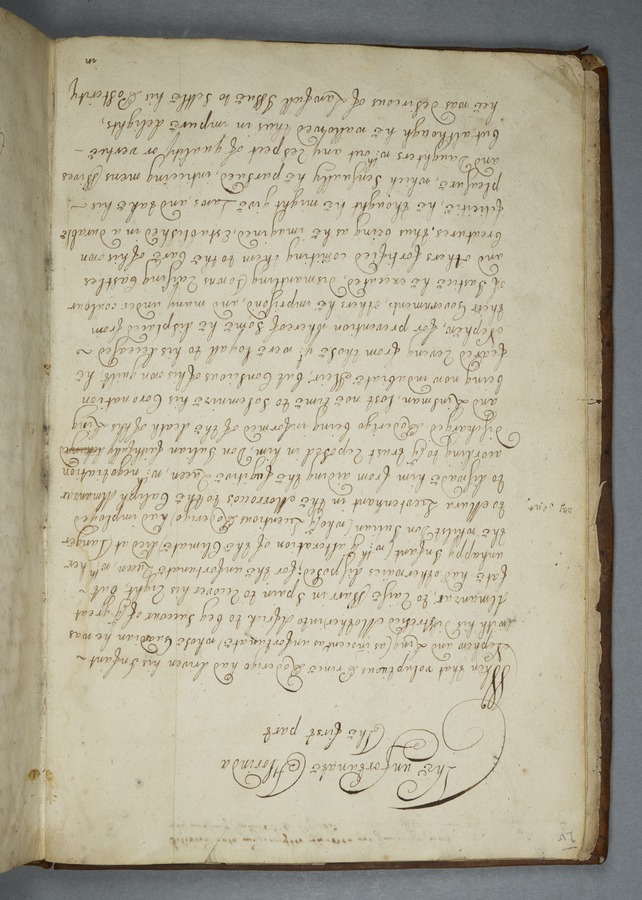 The unfortunate Florinda
The first part
When that voluptuous Prince Roderigo had driven his Infant
Nephew and King (as incestuous unfortunate) whose Guardian he was
with his distressed Mother into Afrik to beg succour of yͤ great
Almanzar, to raise Warr in Spain to recover his Right. But
fate had otherwaies disposed, for the unfortunate Queen wᵗʰ her
unhappy Infant wᵗʰ yͤ alteration of the Climate died at Tanger
The whilst Don Julian (whoͫ Licentious Roderigo) had imployed
to Mura Lieutenant in the Morroccos to the Caliph Almanzar
to disswade him from aiding the fugitive Queen, wᶜʰ negotiation
according to yͤ trust reposed in him Don Julian faithfully
discharged. Roderigo being informed of the death of the King
and Kinsman, lost noe time to solemnize his Coronation
being now indubitate Heir, but Conscious of his own guilt, he
feared Reveng from those yᵗ were loyall to his deceased
Nephew, for prevention whereof Some he displaced from
their Governments, others he imprisond, and many under colour
of Justice he executed, dismantling Towns Razing Castles
and others fortified comitting them to the care of his own
Creatures, thus being as he imagined, Established in a durable
felicitie, he thought he might give Laws and take his
pleasure, which Sensually he pursued, inticeing mens Wives
and Daughters wᵗʰout any respect of quality or vertue
but although he wallowed thus in impure delights,
hee was desireous of Lawfull Issue to Settle his Posterity
in